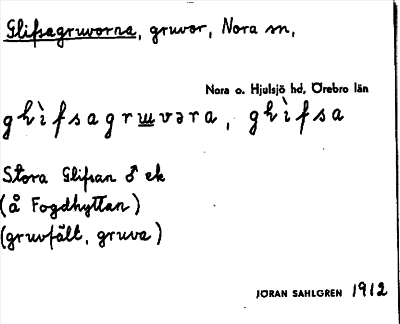 Glifsagruvorna, gruvor, Nora sn,
Nora o. Hjulsjö hd, Örebro län
ghìfsagrɯvəra, ghìfsa
Stora Glifsan ♂ ek
(å Fogdhyttan)
(gruvfält, gruva)
JÖRAN SAHLGREN 1912